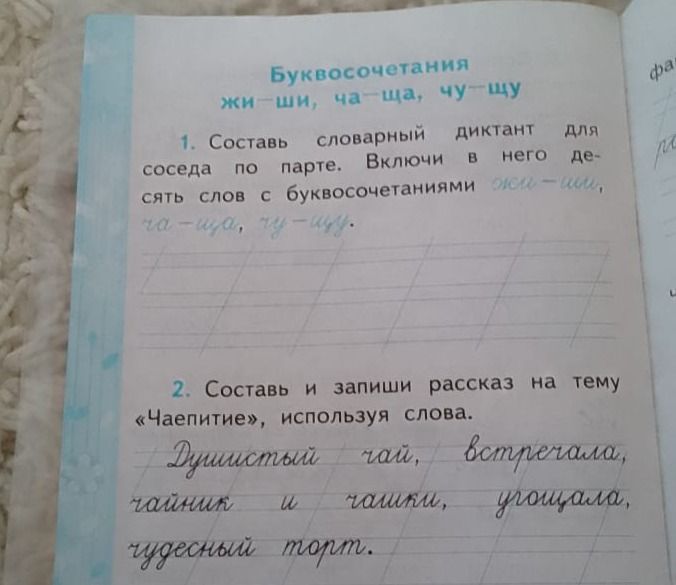 Буквосочетания
жи—ши, ча—ща, чу—щу
1. Составь словарный диктант для
соседа по парте. Включи в него де-
сять слов с буквосочетаниями жи – ши,
ча – ща, чу – щу.
2. Составь и запиши рассказ на тему
«Чаепитие», используя слова.
Душистый чай, встречала,
чайник и чашки, угощала,
чудесный торт.